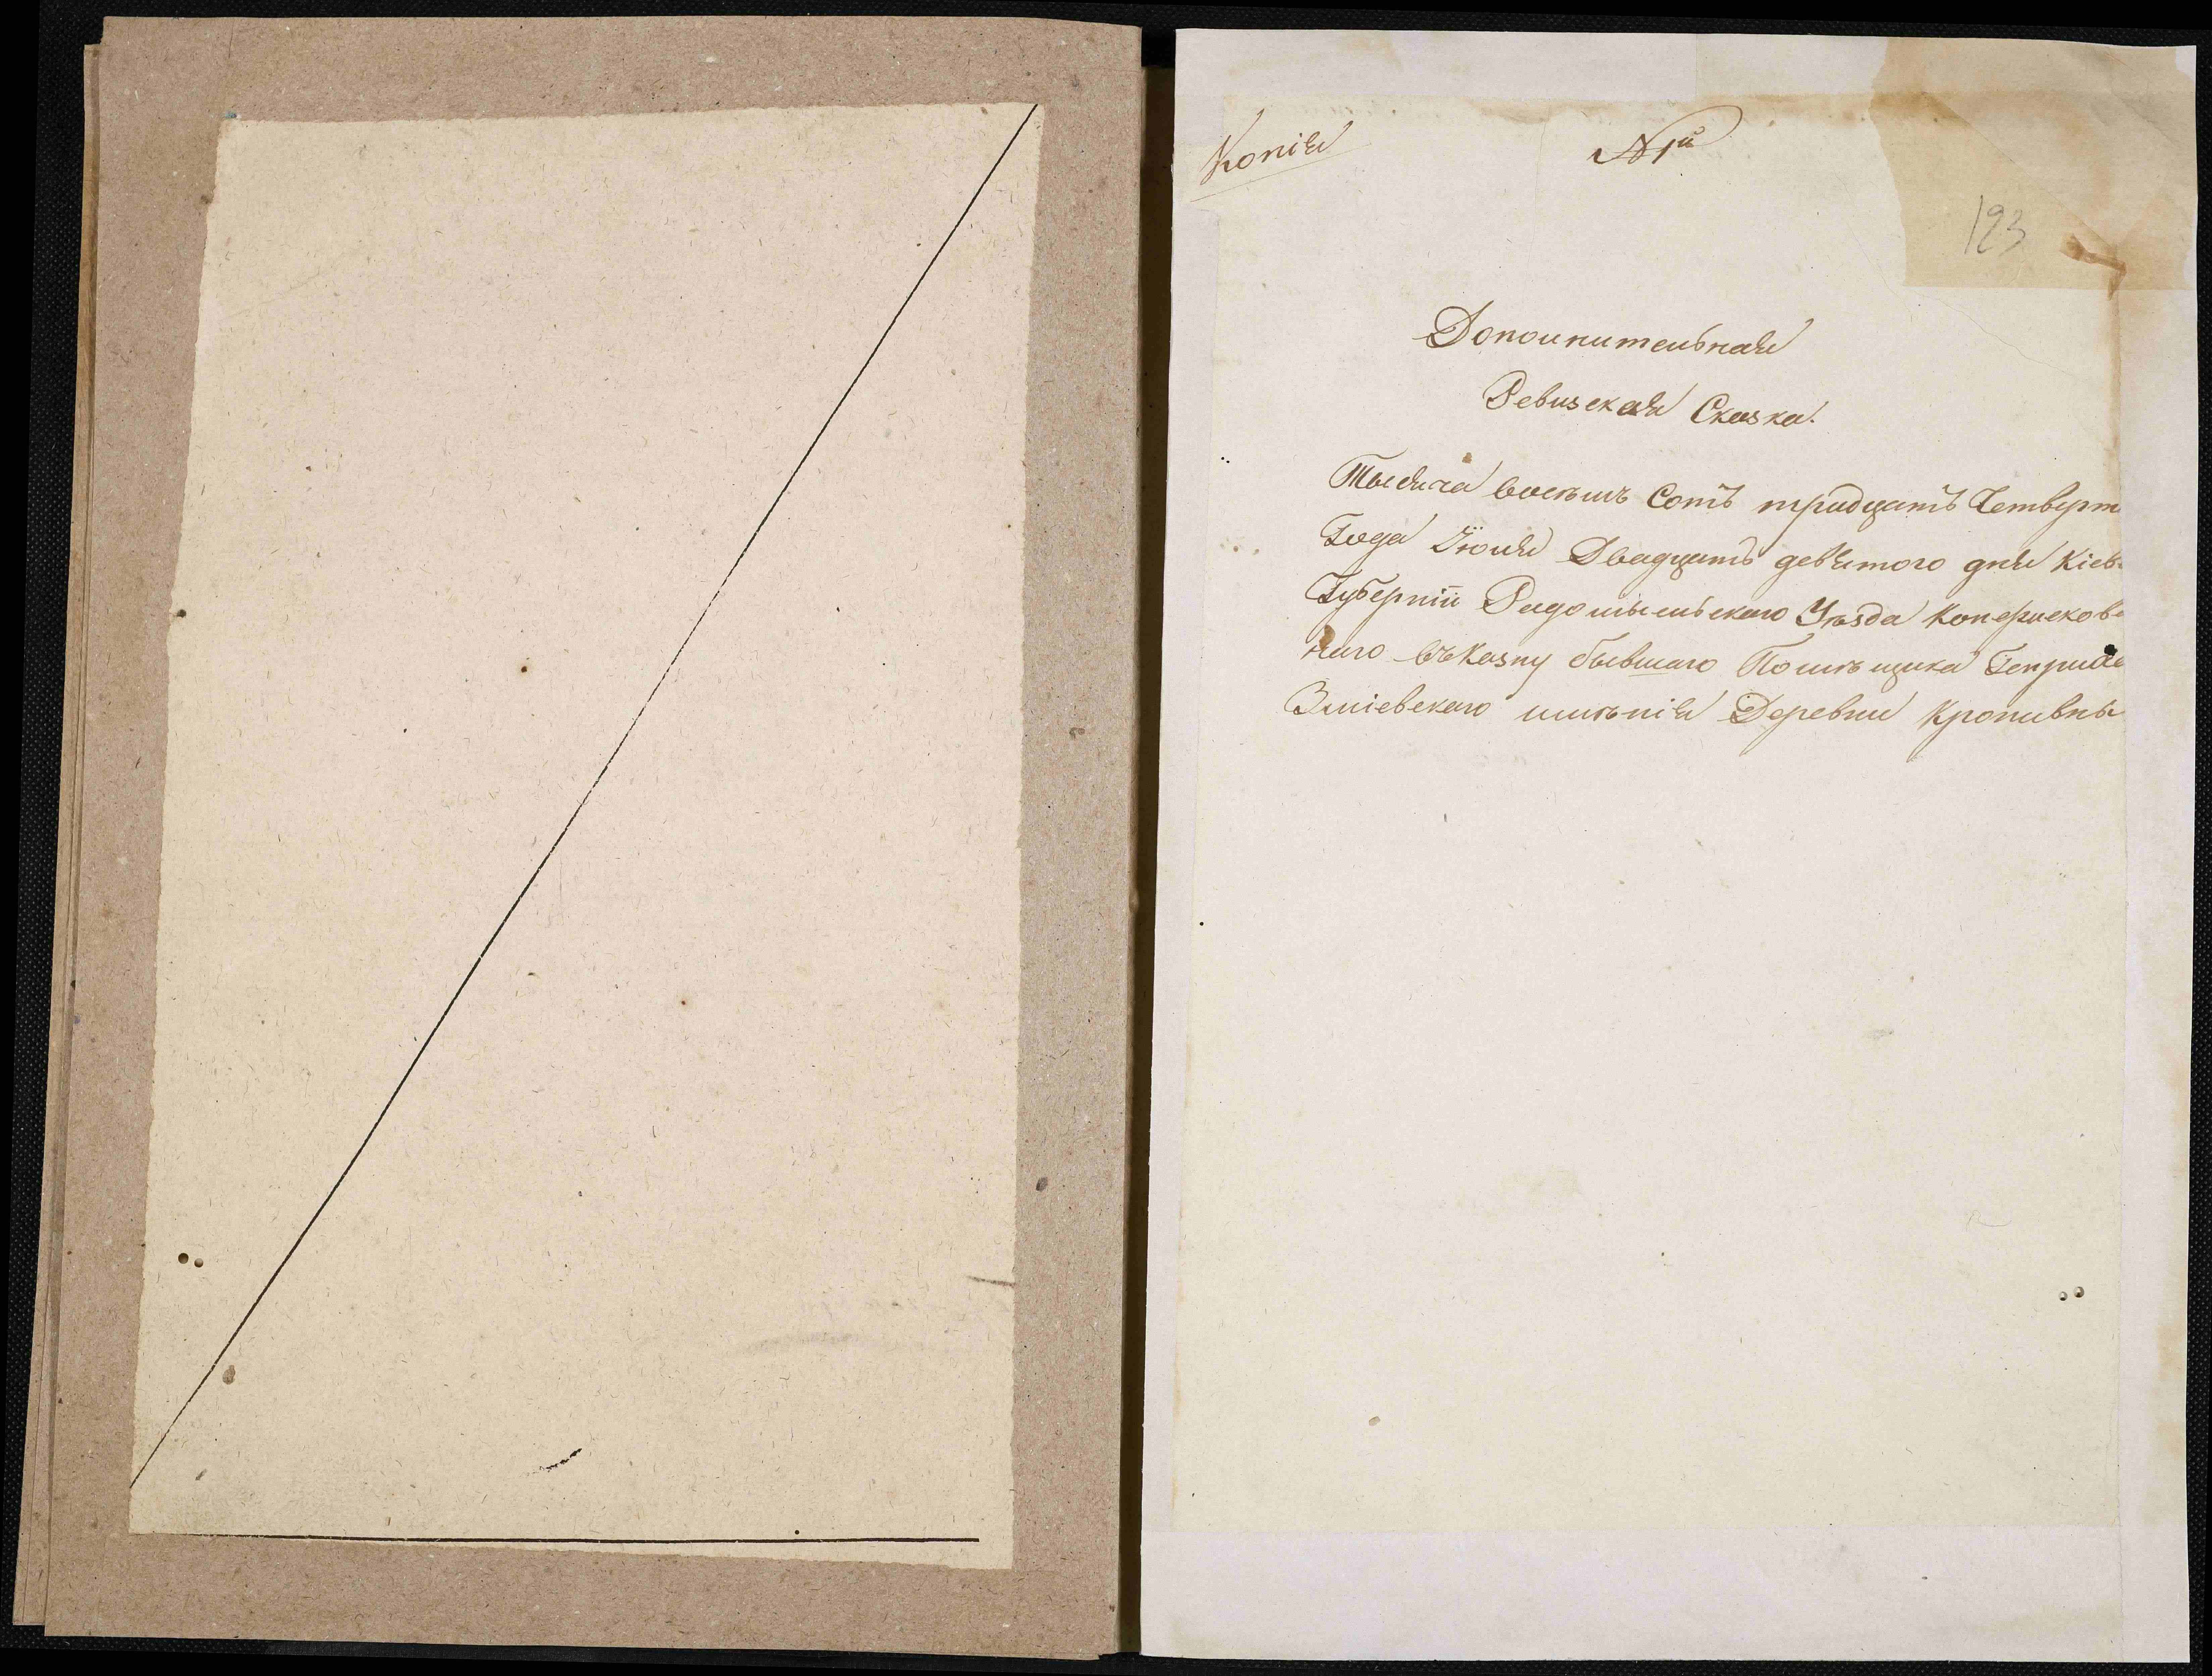 Копія
№ 1й
123
Дополнительная
Ревизская Сказка.
Тысяча восемь Сотъ тридцать Четверт
Года Іюля Двадцать девятого дня Кіев
Губерніи Радомысльскаго Уѣзда Конфисков
наго въ Казну бывшаго Помѣщика Генриха
Змiевскаго имѣнія Деревни Кропивны